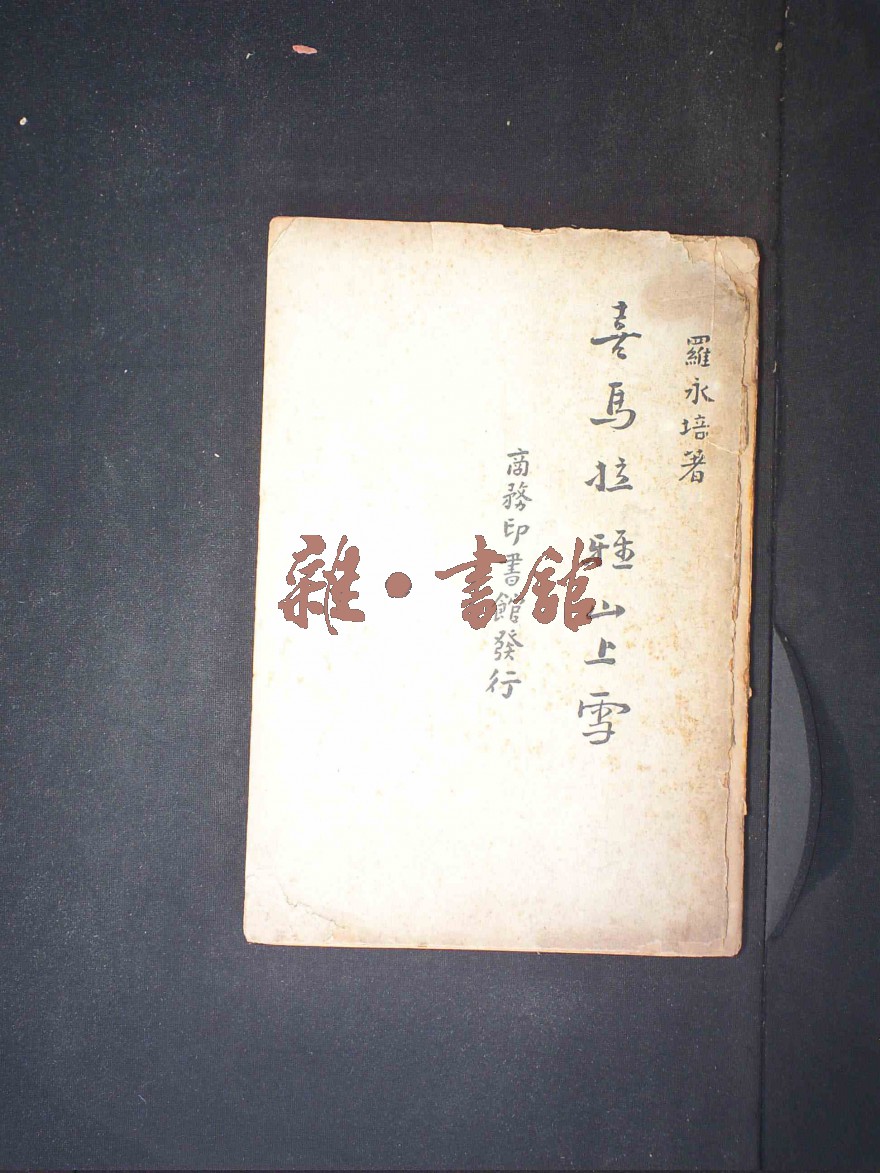 羅永培著
喜馬拉雅山上雪
商務印書館發行
雜·書館